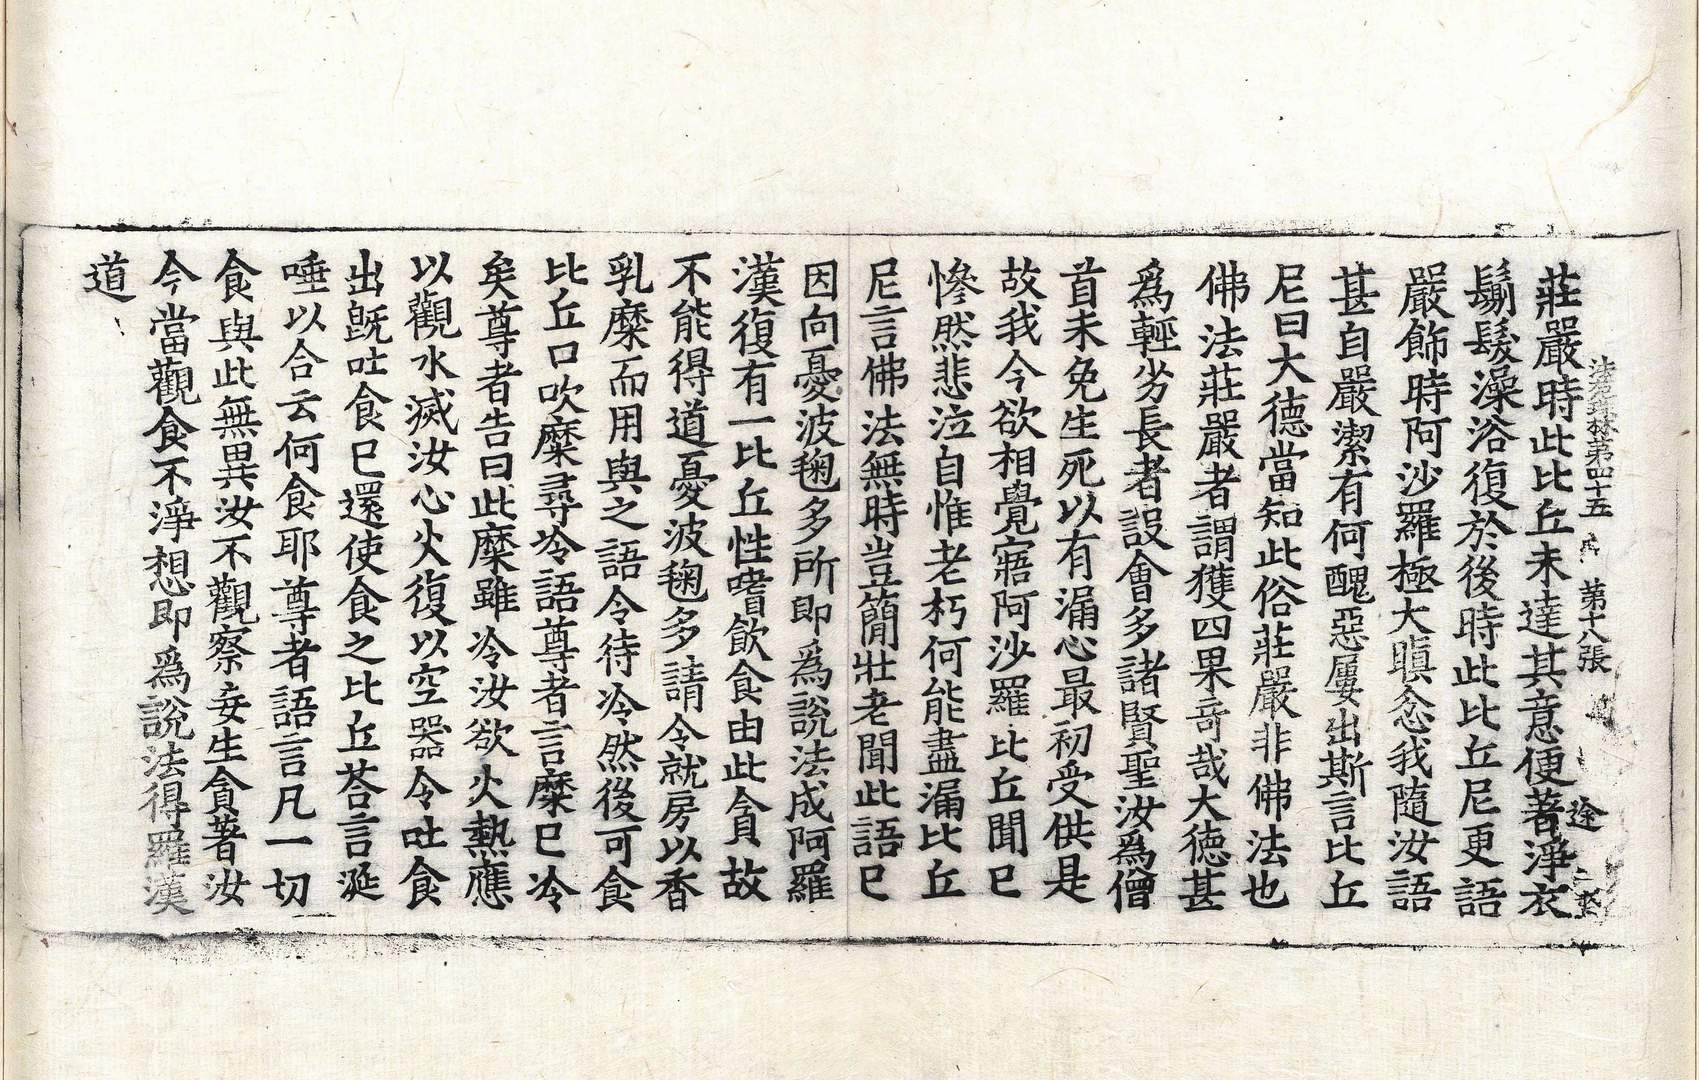 莊嚴時此比丘未達其意便著淨衣
鬀髮澡浴復於後時此比丘尼更語
嚴飾時阿沙羅極大瞋忿我隨汝語
甚自嚴潔有何醜惡屢出斯言比丘
尼曰大德當知此俗莊嚴非佛法也
佛法莊嚴者謂獲四果奇哉大德甚
爲輕劣長者設會多諸賢聖汝爲僧
首未免生死以有漏心最初受供是
故我今欲相覺寤阿沙羅比丘聞已
慘然悲泣自惟老朽何能盡漏比丘
尼言佛法無時豈簡壯老聞此語已
因向憂波毱多所即爲說法成阿羅
漢復有一比丘性嗜飲食由此貪故
不能得道憂波毱多請令就房以香
乳糜而用與之語令待冷然後可食
比丘口吹糜尋冷語尊者言糜已冷
矣尊者告曰此糜雖冷汝欲火熱應
以觀水滅汝心火復以空器令吐食
出旣吐食已還使食之比丘荅言涎
唾以合云何食耶尊者語言凡一切
食與此無異汝不觀察妄生貪著汝
今當觀食不淨想即爲說法得羅漢
道
法苑珠林第四十五 第十八張 途